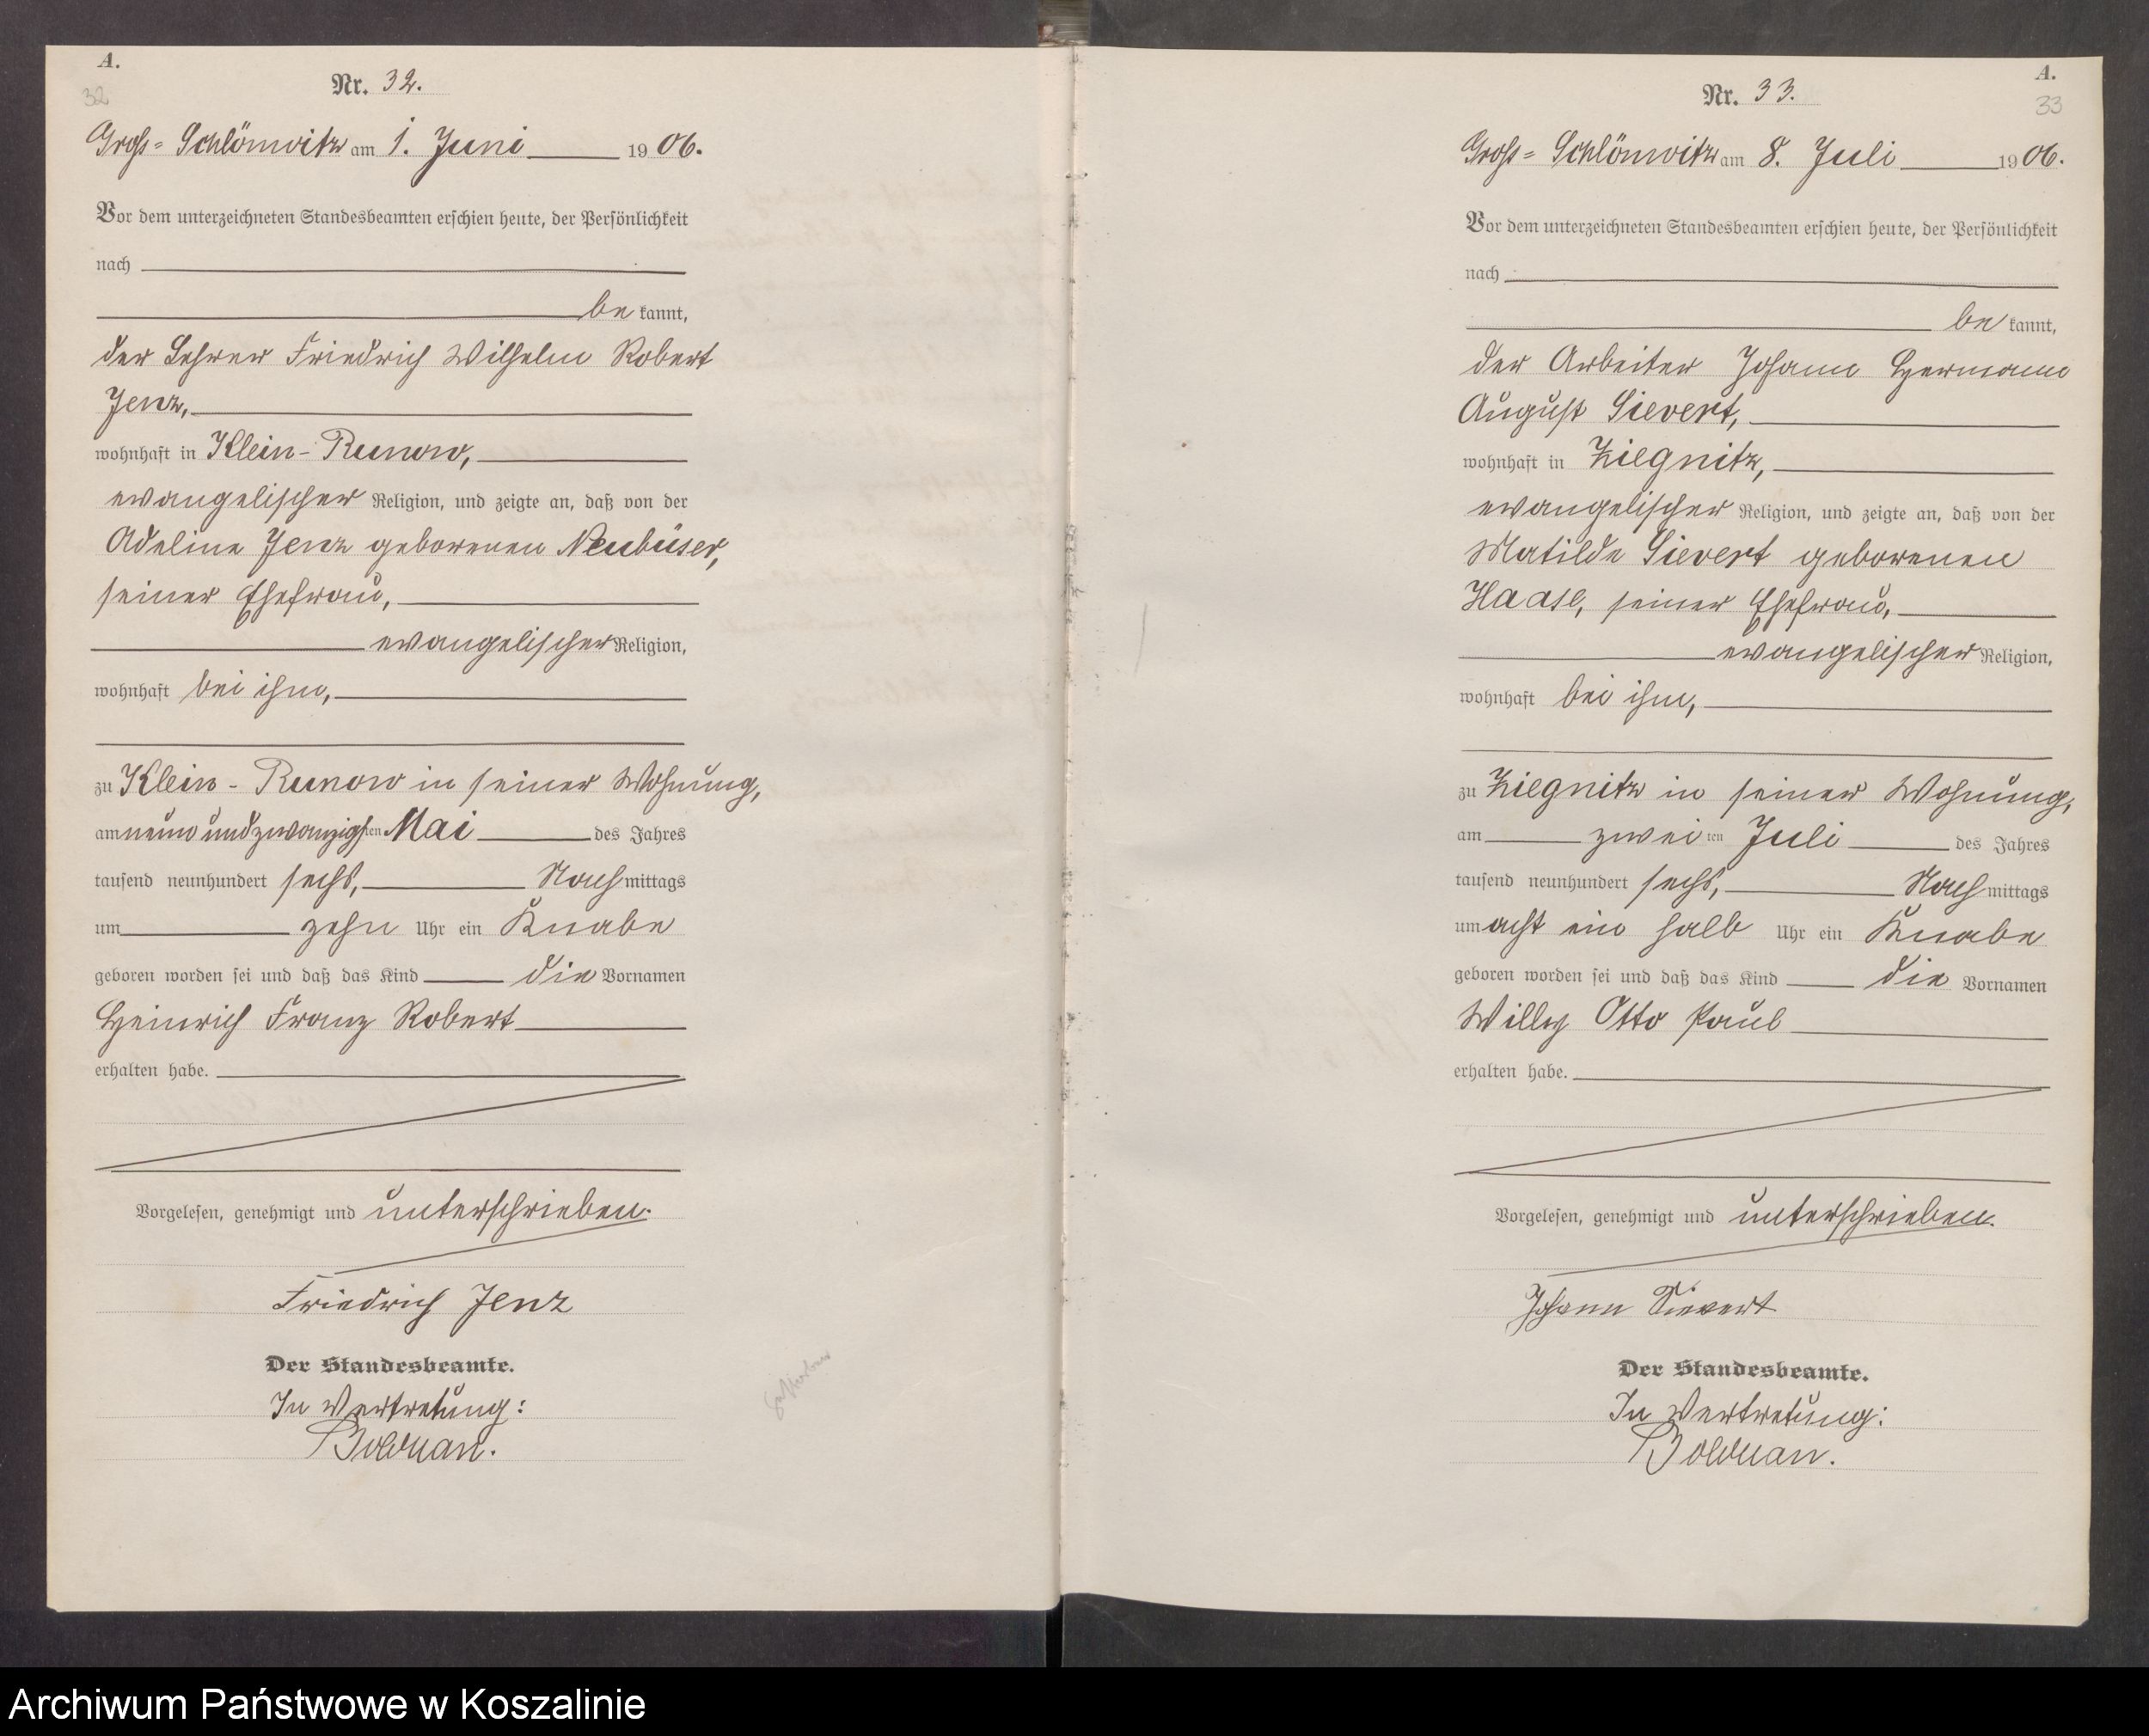 A.
32
Nr. 32.
Groß-Schlönwitz am 1. Juni 1906.
Vor dem unterzeichneten Standesbeamten erschien heute, der Persönlichkeit
nach
be kannt,
der Lehrer Friedrich Wilhelm Robert
Jenz,
wohnhaft in Klein-Runow,
evangelischer Religion, und zeigte an, daß von der
Adeline Jenz geborenen Neubüser,
seiner Ehefrau,
evangelischer Religion,
wohnhaft bei ihm,
zu Klein-Runow in seiner Wohnung,
am neun und zwanzigsten Mai des Jahres
tausend neunhundert sechs, Nach mittags
um zehn Uhr ein Knabe
geboren worden sei und daß das Kind die Vornamen
Heinrich Franz Robert
erhalten habe.
Vorgelesen, genehmigt und unterschrieben.
Friedrich Jenz
Der Standesbeamte.
In Vertretung:
Bolduan.
A.
33
Nr. 33.
Groß-Schlönwitz am 8. Juli 1906.
Vor dem unterzeichneten Standesbeamten erschien heute, der Persönlichkeit
nach
be kannt,
der Arbeiter Johann Hermann
August Sievert,
wohnhaft in Ziegnitz,
evangelischer Religion, und zeigte an, daß von der
Matilde Sievert geborenen
Haase, seiner Ehefrau,
evangelischer Religion,
wohnhaft bei ihm,
zu Ziegnitz in seiner Wohnung,
am zwei ten Juli des Jahres
tausend neunhundert sechs, Nach mittags
um acht ein halb Uhr ein Knabe
geboren worden sei und daß das Kind die Vornamen
Willy Otto Paul
erhalten habe.
Vorgelesen, genehmigt und unterschrieben.
Johann Sievert
Der Standesbeamte.
In Vertretung:
Bolduan.
Archiwum Państwowe w Koszalinie